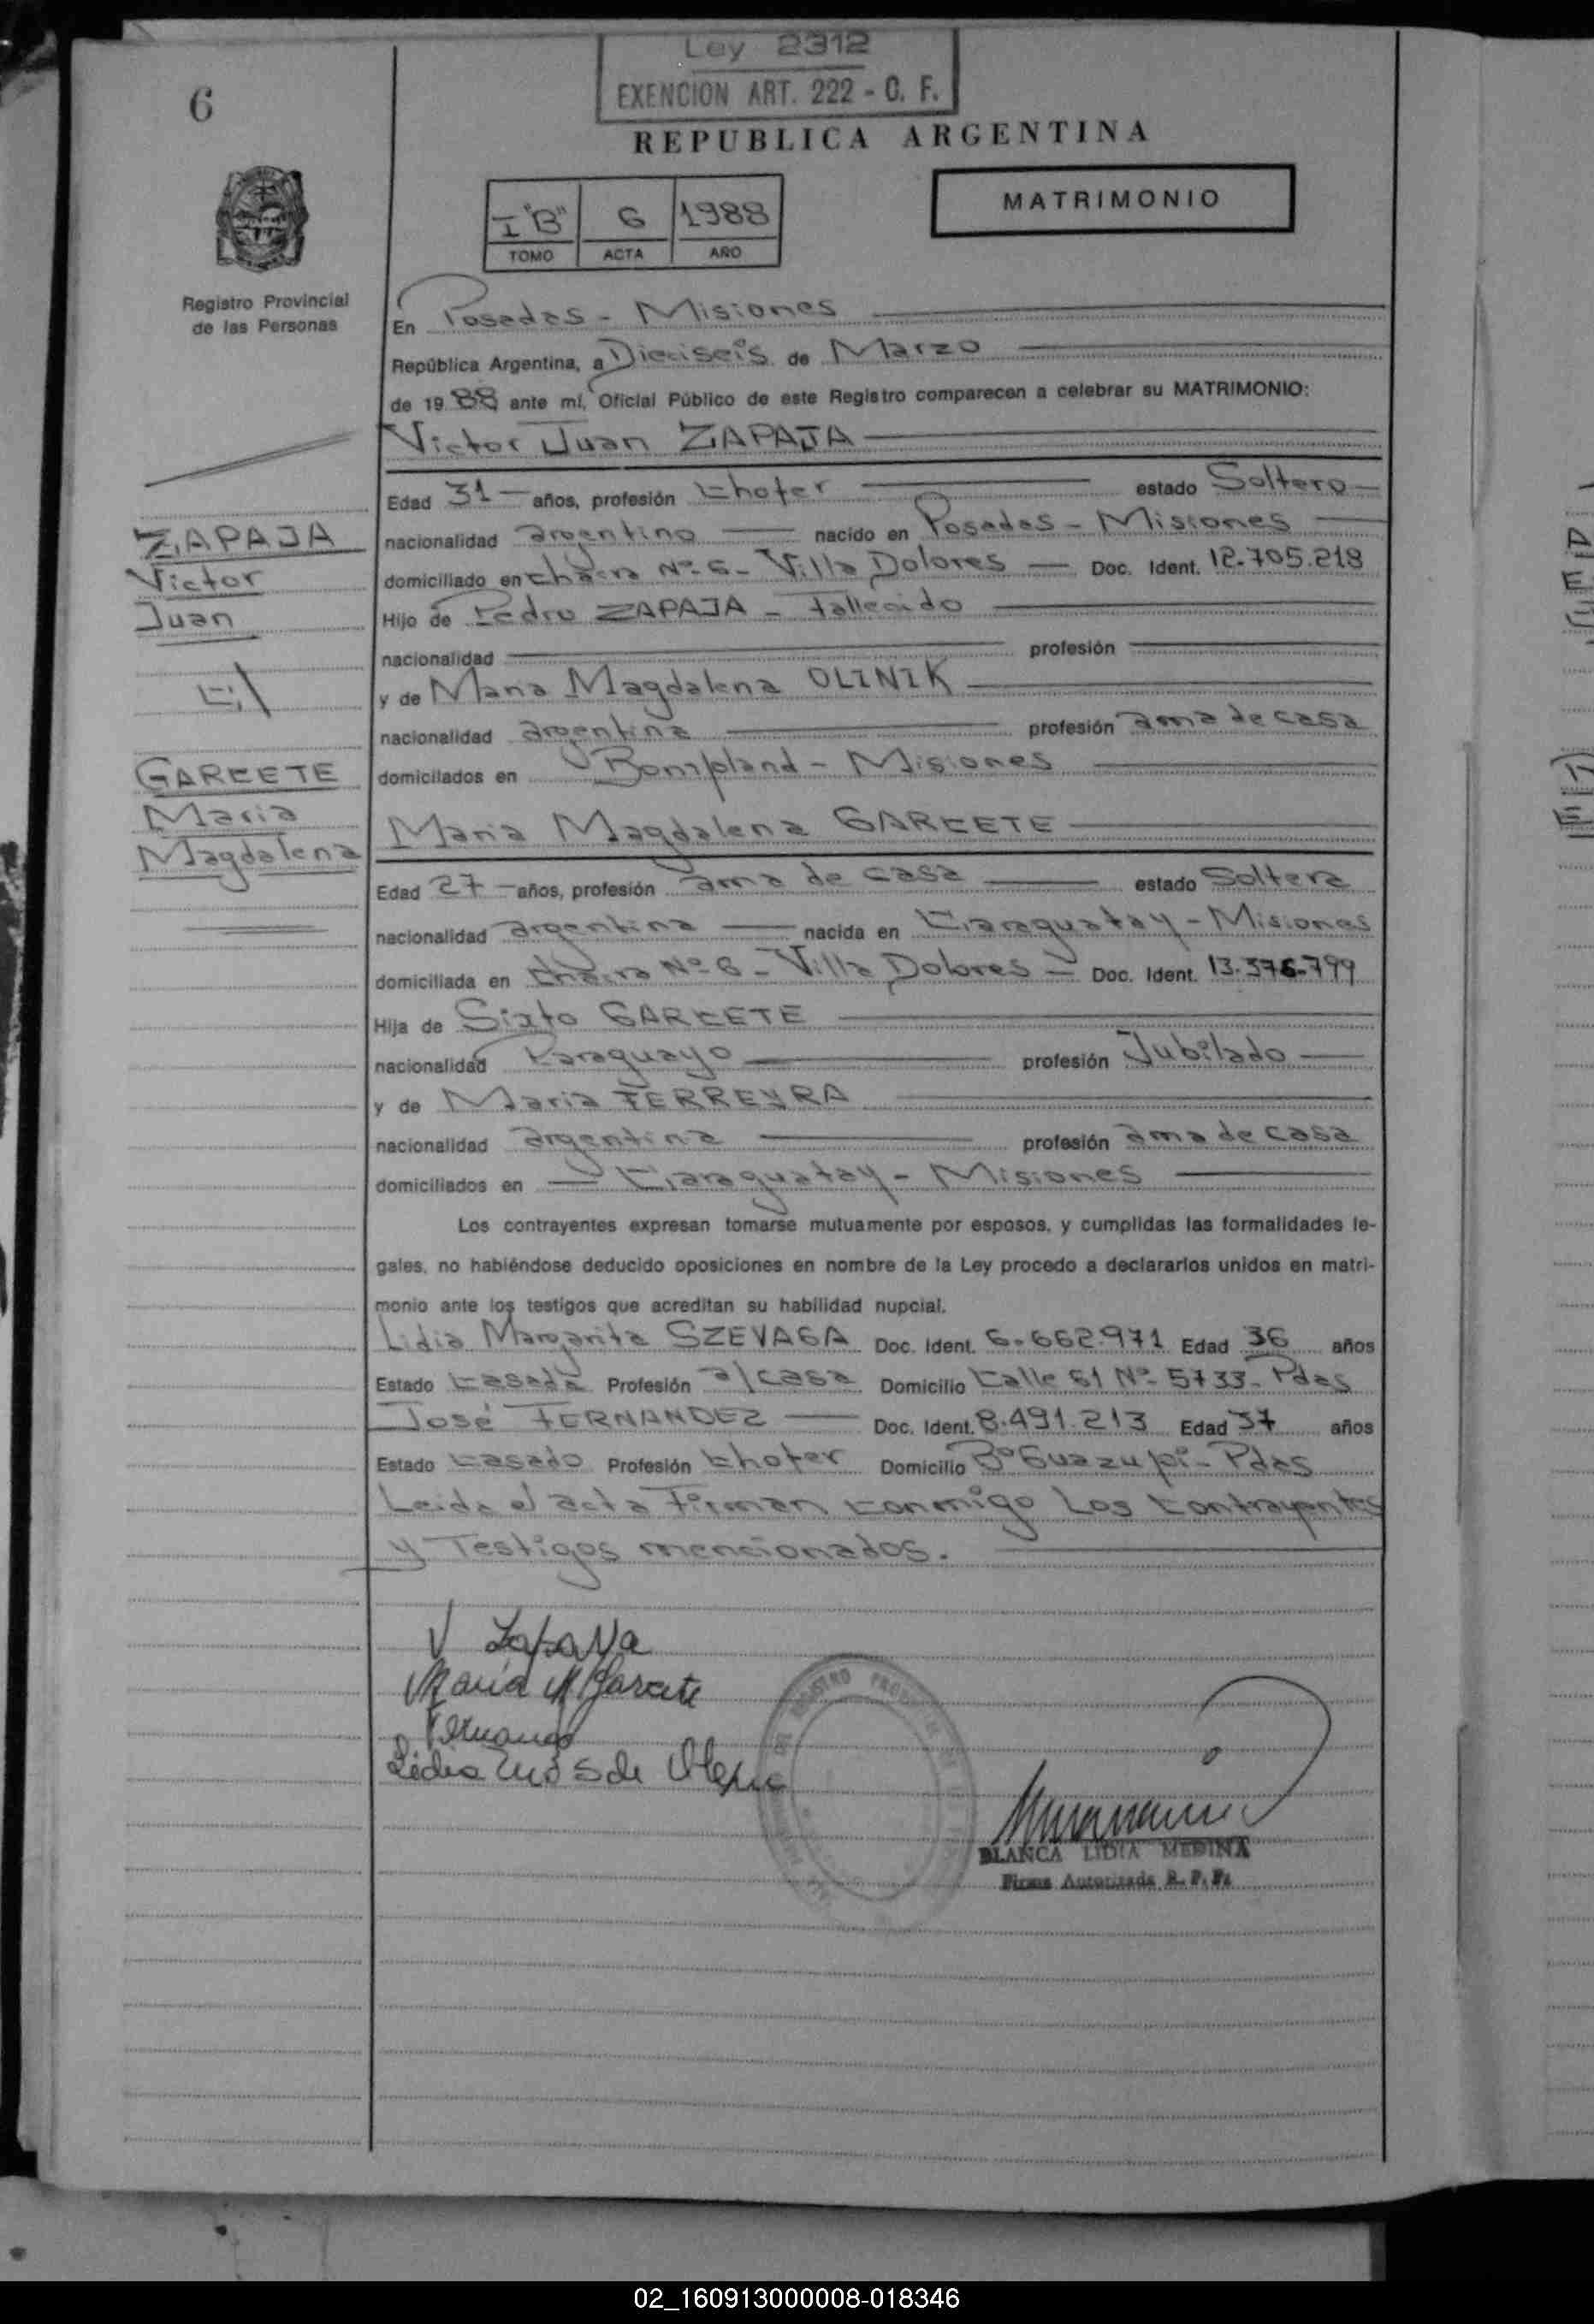 Ley 2312
EXENCION ART. 222 - C. F.
6
REPUBLICA ARGENTINA
I "B" 6 1988
TOMO ACTA AÑO
MATRIMONIO
Registro Provincial
de las Personas
En Posadas - Misiones
República Argentina, a Dieciseis de Marzo
de 1988 ante mí, Oficial Público de este Registro comparecen a celebrar su MATRIMONIO:
Victor Juan ZAPAJA
Edad 31 años, profesión Chofer estado Soltero
nacionalidad argentino nacido en Posadas - Misiones
domiciliado en Chacra Nº 6 - Villa Dolores Doc. Ident. 12.705.218
Hijo de Pedro ZAPAJA - Fallecido
nacionalidad profesión
y de Maria Magdalena OLINIK
nacionalidad argentina profesión ama de casa
domiciliados en Bonpland - Misiones
ZAPAJA
Victor
Juan
C/
GARCETE
Maria
Magdalena
Maria Magdalena GARCETE
Edad 27 años, profesión ama de casa estado Soltera
nacionalidad argentina nacida en Caraguatay - Misiones
domiciliada en Chacra Nº 6 - Villa Dolores Doc. Ident. 13.376.799
Hija de Sixto GARCETE
nacionalidad Paraguayo profesión Jubilado
y de Maria FERREYRA
nacionalidad argentina profesión ama de casa
domiciliados en Caraguatay - Misiones
Los contrayentes expresan tomarse mutuamente por esposos, y cumplidas las formalidades le-
gales, no habiéndose deducido oposiciones en nombre de la Ley procedo a declararlos unidos en matri-
monio ante los testigos que acreditan su habilidad nupcial.
Lidia Margarita SZEVAGA Doc. Ident. 6.662.971 Edad 36 años
Estado Casada Profesión a/casa Domicilio Calle 61 Nº 5733 - Pdas
José FERNANDEZ Doc. Ident. 8.491.213 Edad 37 años
Estado Casado Profesión Chofer Domicilio Bº Guazupi - Pdas
Leida el acta Firman conmigo Los contrayentes
y Testigos mencionados.
V Zapaya
Maria M Garcete
BLANCA LIDIA MEDINA
Firma Autorizada R. P. P.
02_160913000008-018346